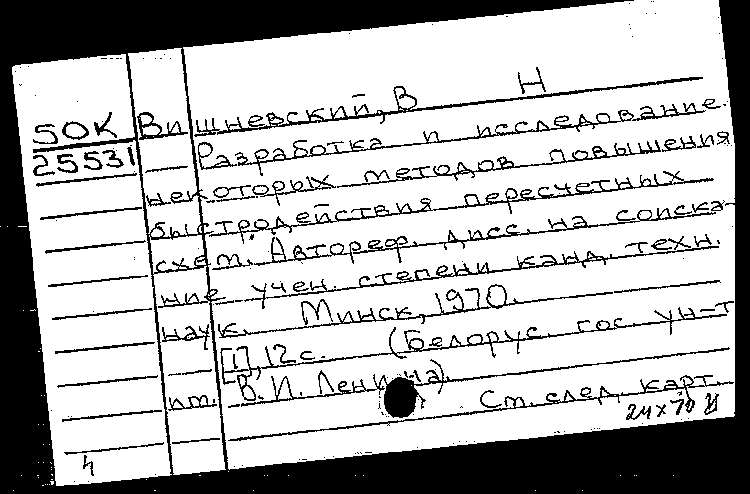 50К Вишневский, В Н
25531 Разработка и исследование
некоторых методов повышения
быстродействия пересчетных
схем. Автореф. дисс. на соиска-
ние учен. степени канд. техн.
наук. Минск, 1970.
[1], 12 с. (Белорус. гос. ун-т
им. В.И. Ленина).
См. след. карт.
4